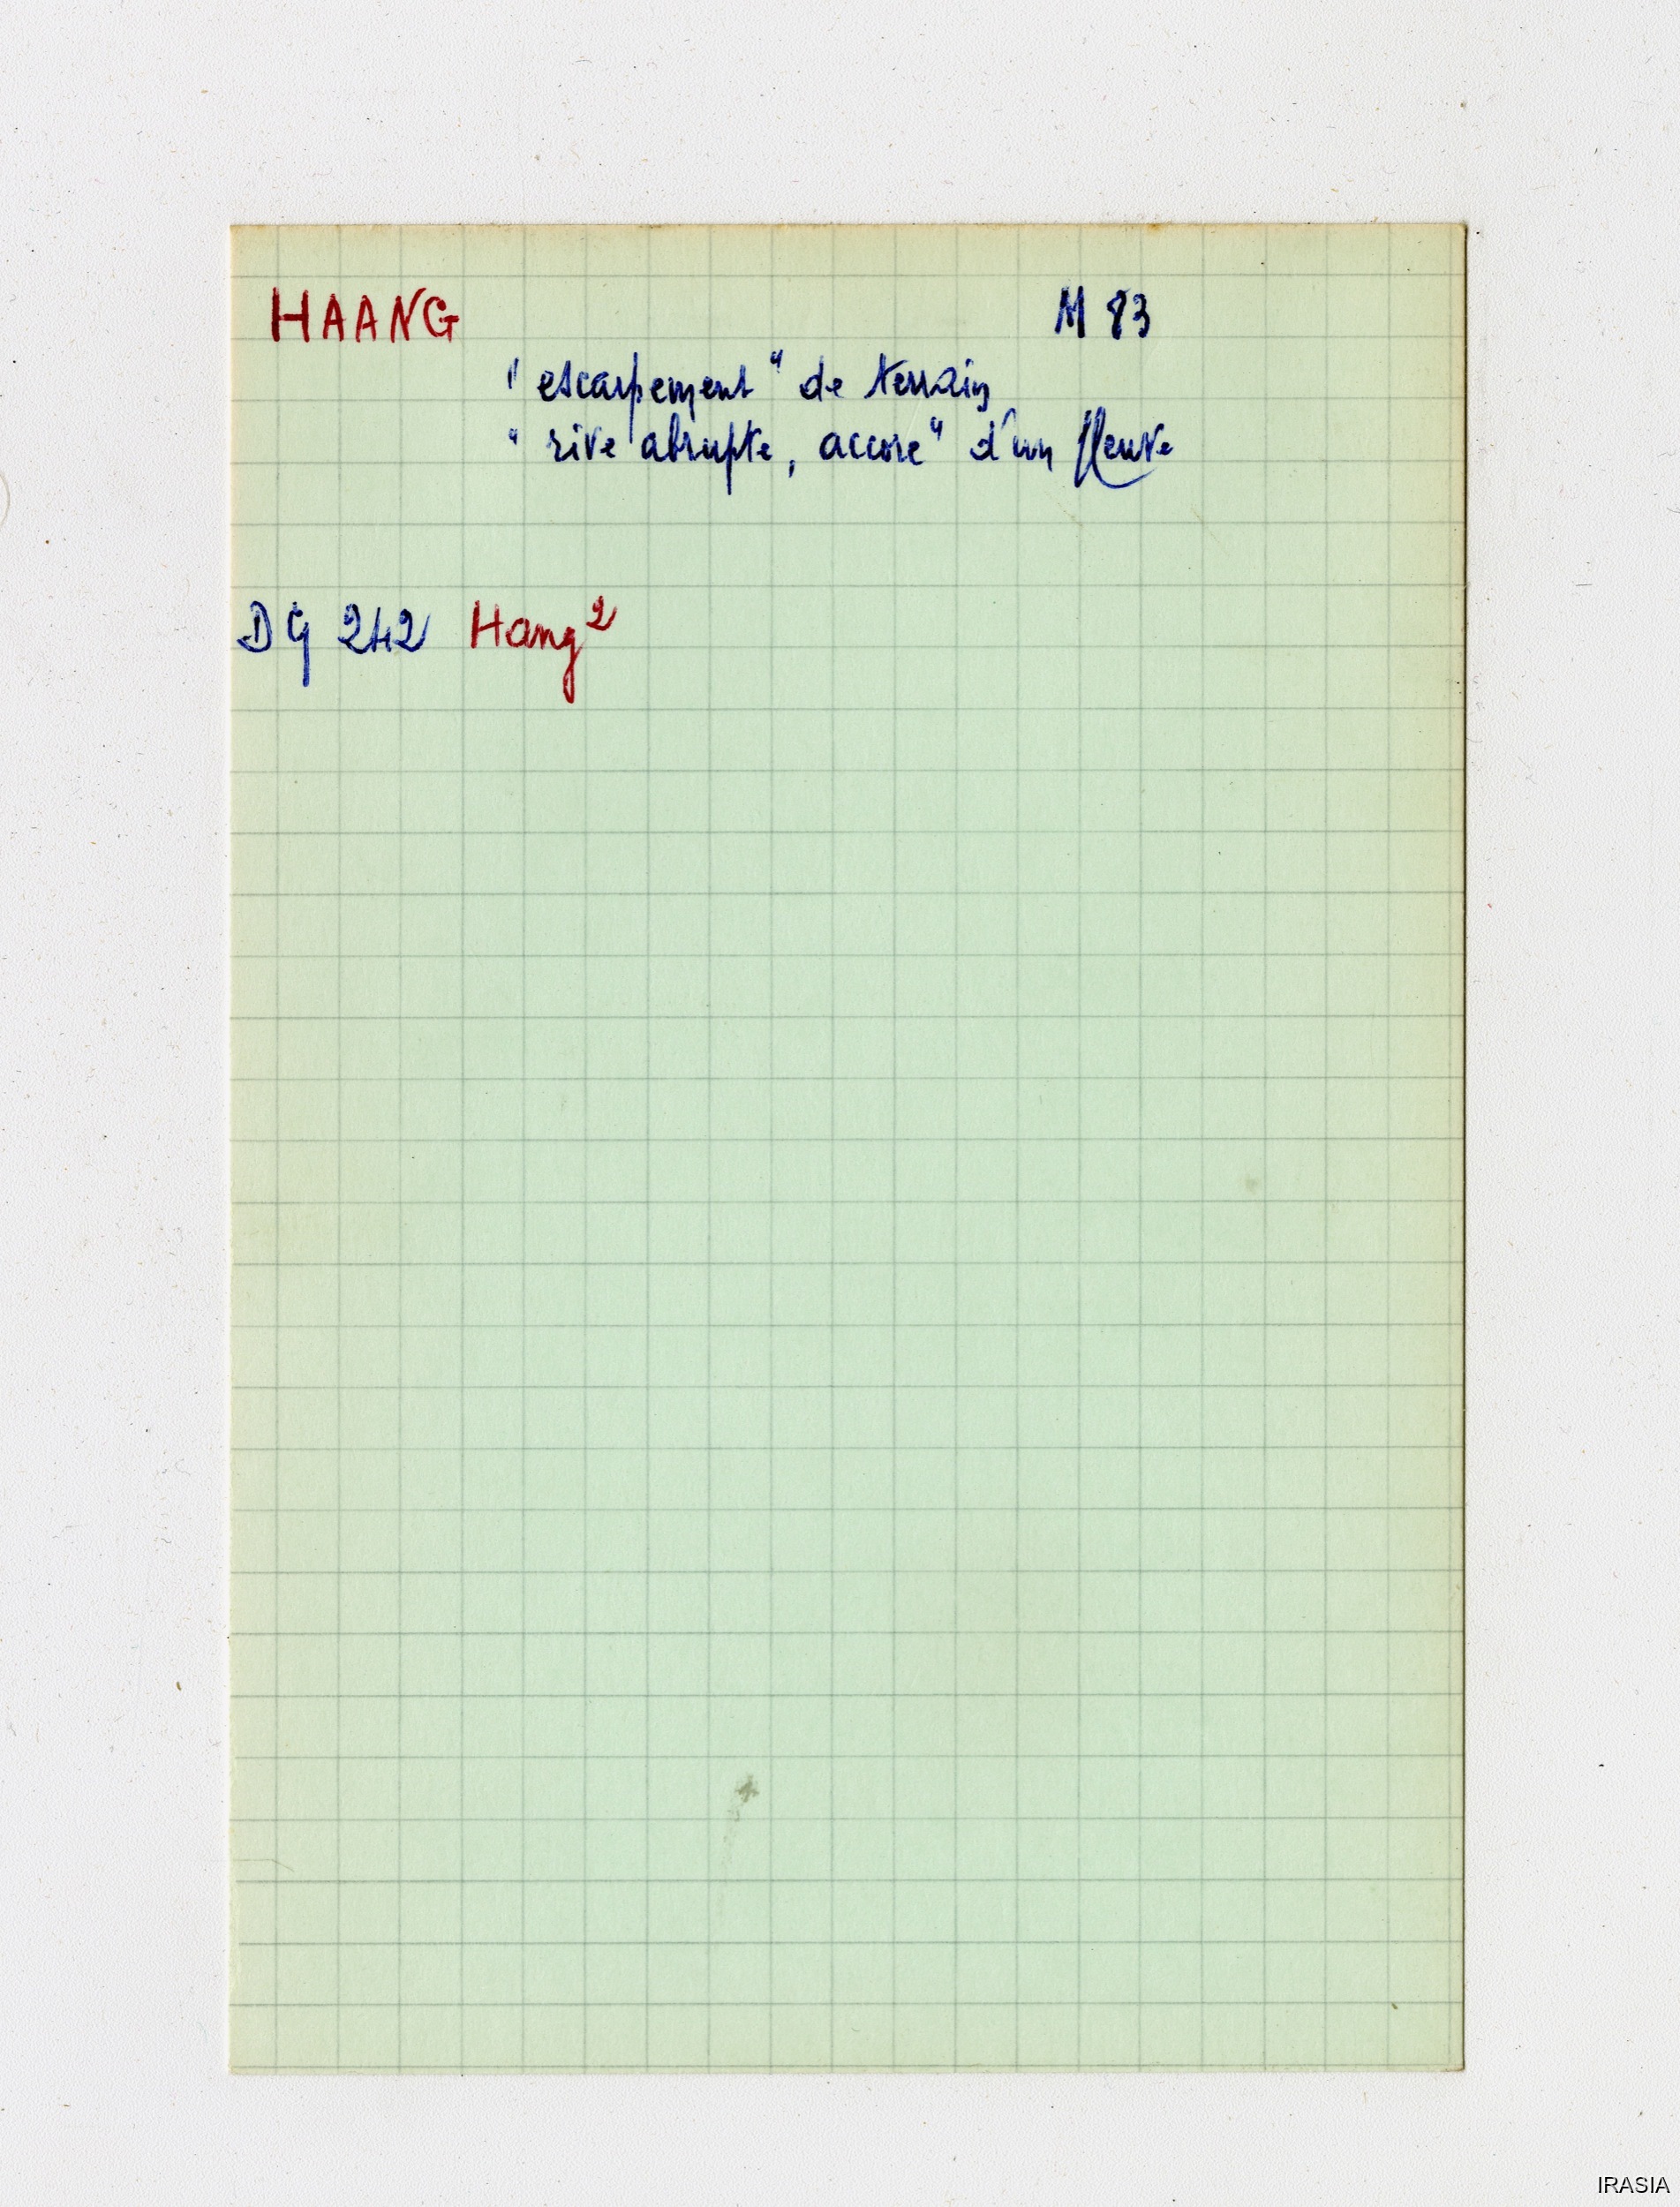 HAANG M 83
"escarpement" de terrain
"rive abrupte, accore" d'un fleuve
DG 242 Hang²
IRASIA